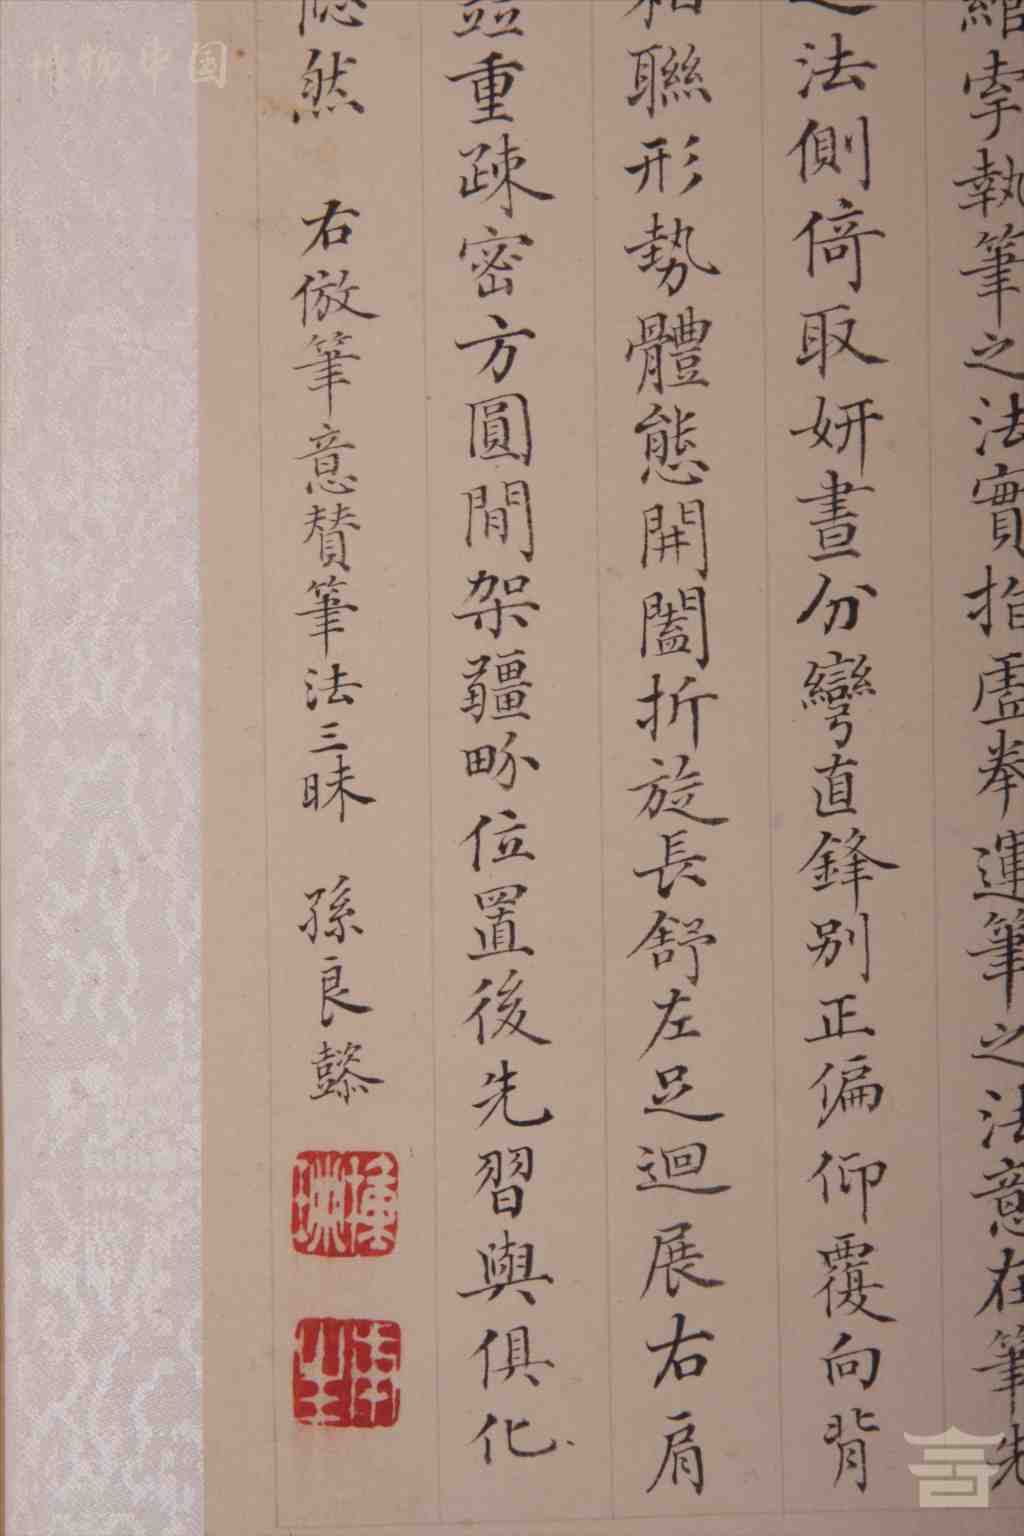 綰
挛執筆之法實指虛拳運筆之法意在筆先
之法側倚取妍晝分彎直鋒別正偏仰覆向背
相聯形勢體態開闔折旋長舒左足迴展右肩
並重疎密方圓閒架疆畛位置後先習與俱化
然
右倣筆意贊筆法三昧
孫良
博物中国